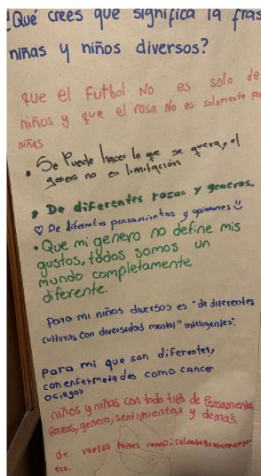 ¿Qué crees que significa la fras
niñas y niños diversos?
que el Futbol No es solo de
niños y que el rosa No es solamente pa
niñas
• Se Puede hacer lo que se quera, el
genero no es limitación
• De diferentes razas y generos.
♡ De diferentes pensamientos y opiniones
• Que mi genero no define mis
gustos, todos somos un
mundo completamente
diferente.
Para mi niños diversos es "de diferentes
culturas con diversidad mental" inteligentes".
para mi que son diferentes,
con enfermedades como cancer
o ciegos
niños y niñas con todo tipo de Pensamientos
razas, genero, sentimientos y demas
de varios paises como; colombia
etc.